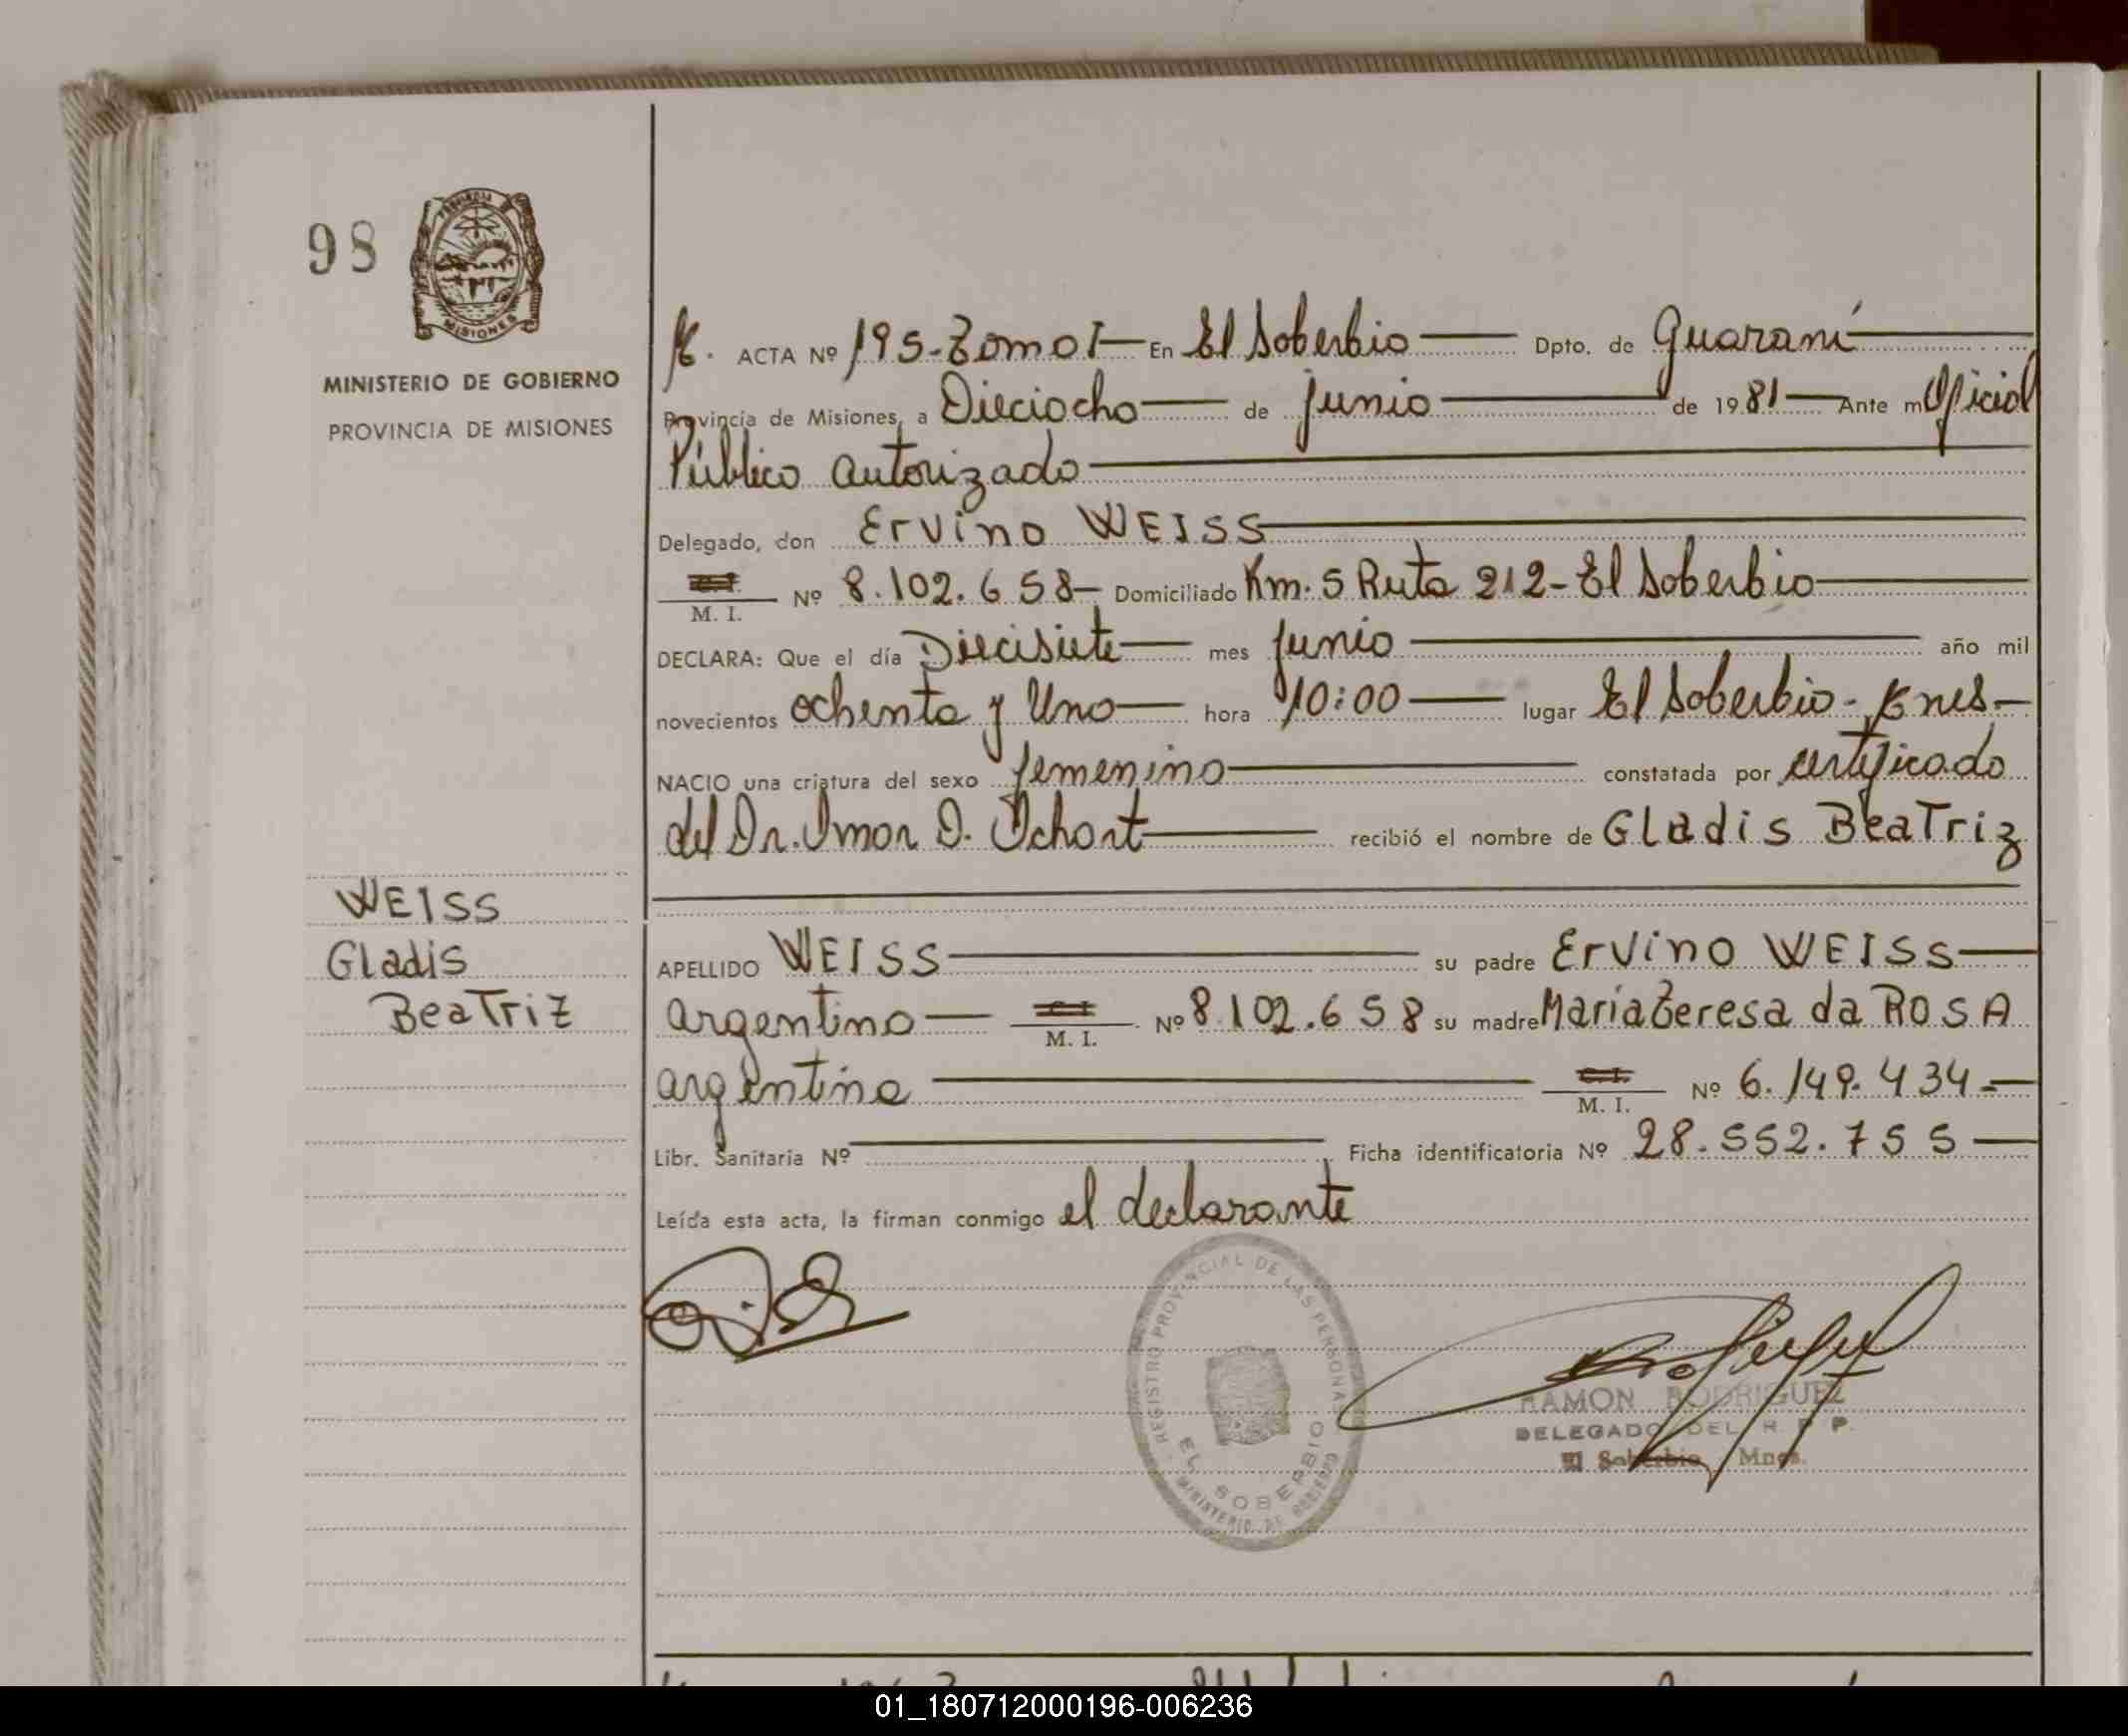 98
MISIONES
MINISTERIO DE GOBIERNO
PROVINCIA DE MISIONES
WEISS
Gladis
BeaTriz
ACTA Nº 195-Tomo I En El Soberbio Dpto. de Guaraní
Provincia de Misiones, a Dieciocho de junio de 1981 Ante mí Oficial
Público autorizado
Delegado, don Ervino WEISS
M. I. Nº 8.102.658 Domiciliado Km. 5 Ruta 212-El Soberbio
DECLARA: Que el día Diecisiete mes junio año mil
novecientos ochenta y Uno hora 10:00 lugar El Soberbio-
NACIO una criatura del sexo femenino constatada por certificado
del Dr. Omar D. recibió el nombre de Gladis BeaTriz
APELLIDO WEISS su padre Ervino WEISS
argentino M. I. Nº 8.102.658 su madre María Teresa da ROSA
argentina M. I. Nº 6.149.434
Libr. Sanitaria Nº Ficha identificatoria Nº 28.552.755
Leída esta acta, la firman conmigo el declarante
REGISTRO PROVINCIAL DE LAS PERSONAS
EL SOBERBIO
MINISTERIO DE GOBIERNO
RAMON RODRIGUEZ
DELEGADO DEL R P P.
El Soberbio Mnes.
01_180712000196-006236